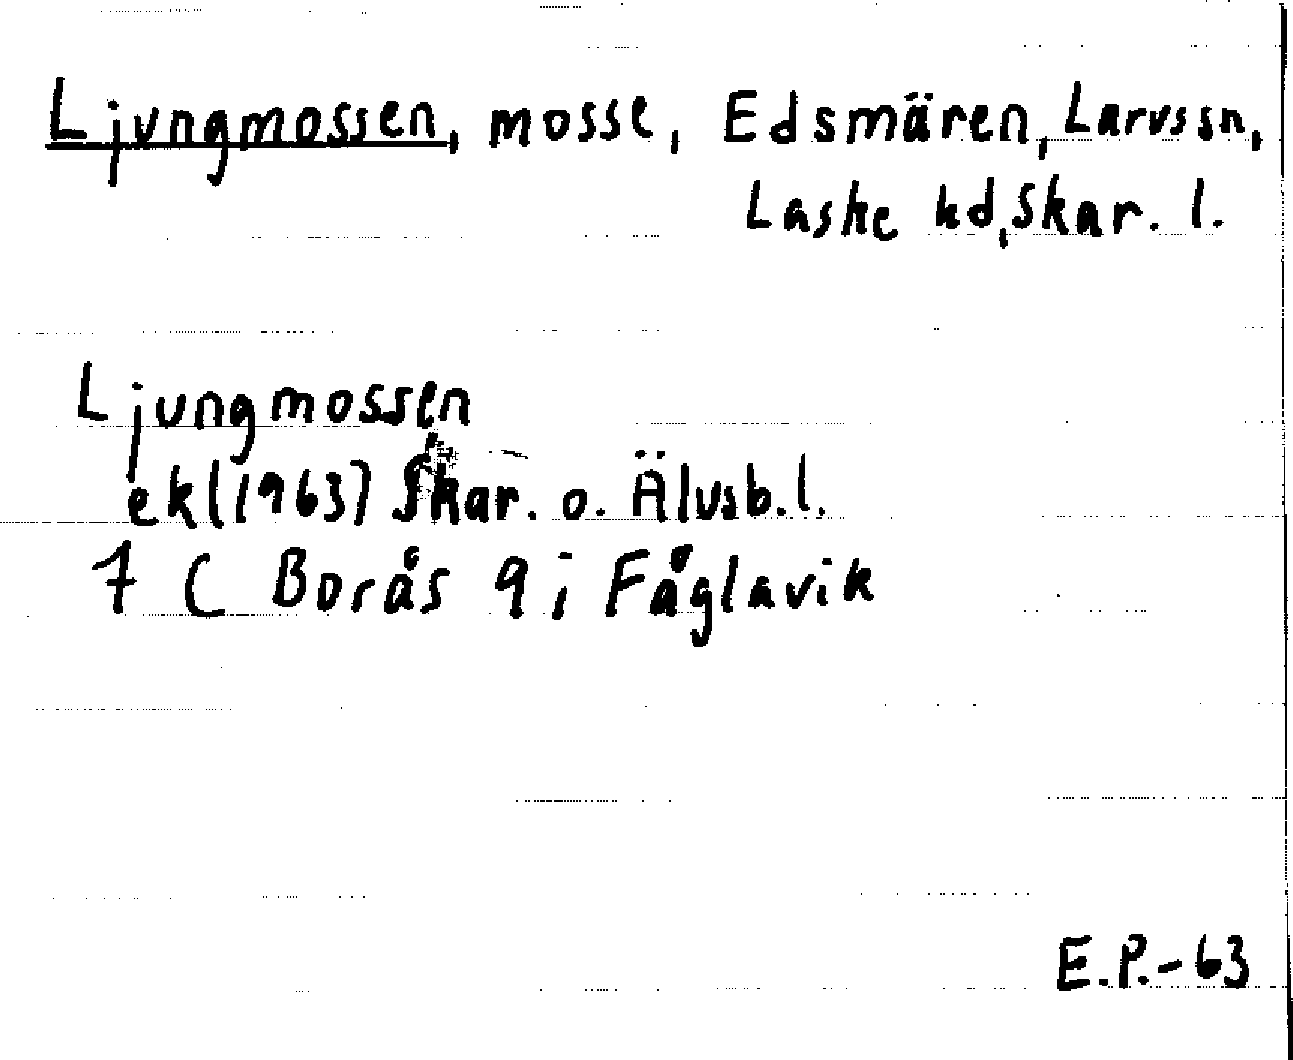 Ljungmossen, mosse, Edsmären, Larvs sn,
Laske hd, Skar. l.
Ljungmossen
ek (1963) Skar. o. Älvsb. l.
7 C Borås 9 i Fåglavik
E.P.-63